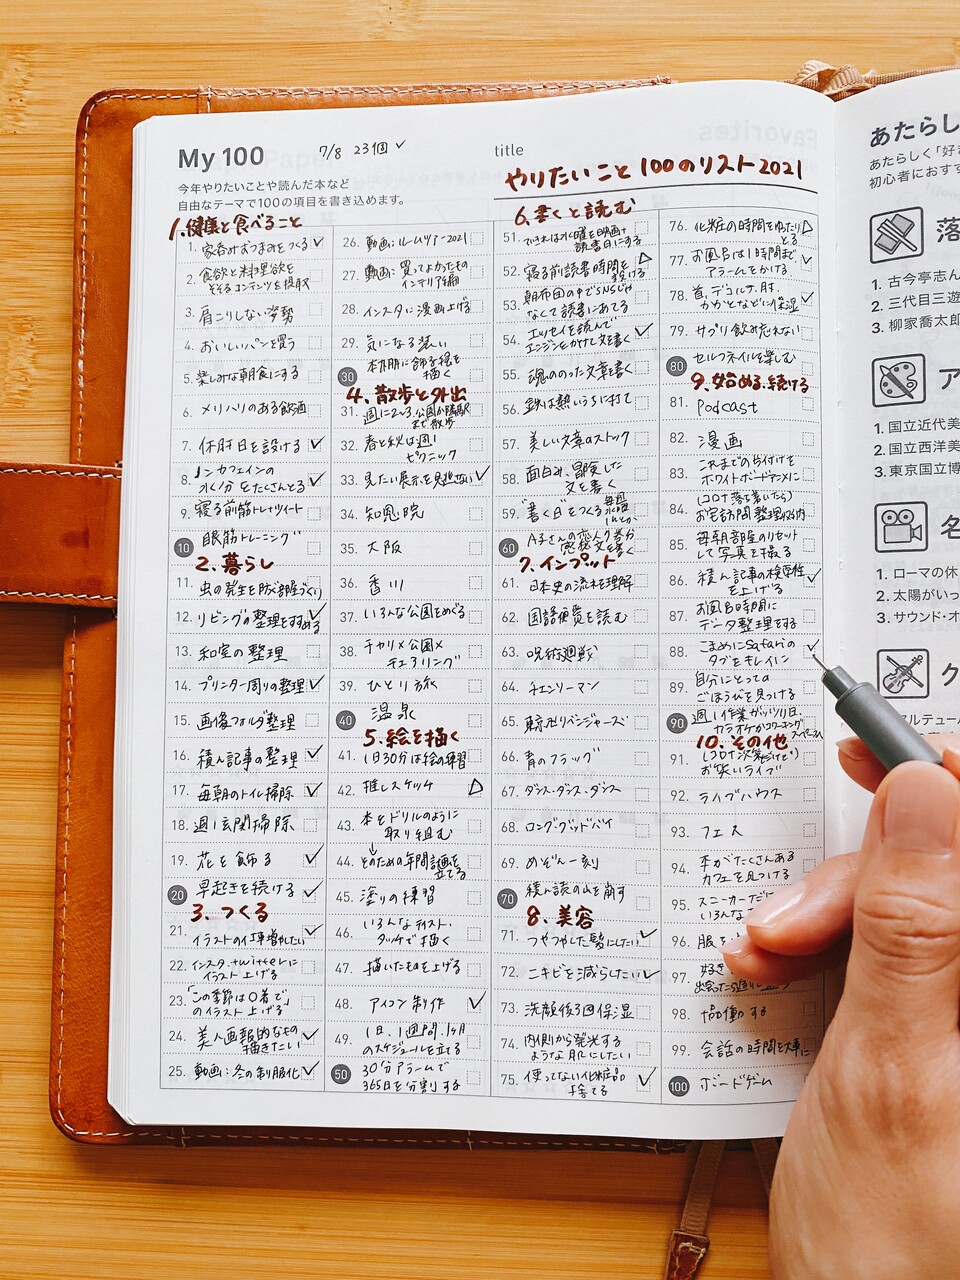 My 100
7/8 23個 ✓
title
今年やりたいことや読んだ本など
自由なテーマで100の項目を書き込めます。
やりたいこと 100のリスト 2021
1. 健康と食べること
1. 家呑みおつまみをつくる ✓
2. 食欲と料理欲を
そそるコンテンツを摂取
3. 肩こりしない姿勢
4. おいしいパンを買う
5. 楽しみな朝食にする
6. メリハリのある飲酒
7. 休肝日を設ける ✓
8. ノンカフェインの
水分をたくさんとる ✓
9. 寝る前筋トレツイート
10 眼筋トレーニング
2. 暮らし
11. 虫の発生を防ぐ部屋づくり
12. リビングの整理をすすめる ✓
13. 和室の整理
14. プリンター周りの整理 ✓
15. 画像フォルダ整理
16. 積ん記事の整理 ✓
17. 毎朝のトイレ掃除 ✓
18. 週1玄関掃除
19. 花を飾る ✓
20 早起きを続ける ✓
3. つくる
21. イラストの仕事増やしたい ✓
22. インスタ、twitterに
イラスト上げる
23. 「この季節は〇着で」
のイラスト上げる
24. 美人画報的なもの
描きたい ✓
25. 動画:冬の制服化 ✓
26. 動画:ルームツアー2021
27. 動画:買ってよかったもの
インテリア編
28. インスタに漫画上げる
29. 気になる装い
30 本作品に飾る絵を
描く
4. 散歩と外出
31. 週に2〜3、公園か隣駅
まで散歩
32. 春と秋は週1
ピクニック
33. 見たい展示を見逃さない ✓
34. 知恩院
35. 大阪
36. 香川
37. いろんな公園をめぐる
38. チャリ×公園×
チェアリング
39. ひとり旅
40 温泉
5. 絵を描く
41. 1日30分は絵の練習
42. 推しスケッチ △
43. 本をドリルのように
取り組む
44. そのための年間計画を
立てる
45. 塗りの練習
46. いろんなテイスト、
タッチで描く
47. 描いたものを上げる
48. アイコン制作 ✓
49. 1日、1週間、1ヶ月
のスケジュールを立てる
50 30分アラームで
365日を分割する
6. 書くと読む
51. できれば水曜を映画+
読書日にする
52. 寝る前読書時間を
設ける △
53. 朝布団の中でSNSじゃ
なくて読書にあてる
54. エッセイを読んで
エンジンをかけて文を書く ✓
55. 魂ののった文章を書く
56. 鉄は熱いうちに打て
57. 美しい文章のストック
58. 面白み、冒険した
文を書く
59. "書く日"をつくる 毎週
60 A子さんの恋人今券分
感想文を書く
7. インプット
61. 日本史の流れを理解
62. 国語便覧を読む
63. 呪術廻戦
64. チェンソーマン
65. 東京卍リベンジャーズ
66. 青のフラッグ
67. ダンス・ダンス・ダンス
68. ロング・グッドバイ
69. めぞん一刻
70 積ん読の山を崩す
8. 美容
71. つやつやした髪にしたい ✓
72. ニキビを減らしたい ✓
73. 洗顔後3回保湿
74. 内側から発光する
ような肌にしたい
75. 使ってない化粧品
捨てる ✓
76. 化粧の時間をゆったり
とる △
77. お風呂は1時間まで
アラームをかける ✓
78. 首、デコルテ、肘、
かかとなどに保湿 ✓
79. サプリ飲み忘れない
80 セルフネイルを楽しむ
9. 始める、続ける
81. Podcast
82. 漫画
83. これまでの片付けを
ホワイトボードアニメに
84. (コロナ落ち着いたら)
お宅訪問整理収納
85. 毎朝部屋のリセット
して写真を撮る
86. 積ん記事の検索性
を上げる ✓
87. お風呂時間に
データ整理をする
88. こまめにSafariの
タブをキレイに ✓
89. 自分にとっての
ごほうびを見つける
90 週1作業ガッツリ日、
カラオケかコワーキング
スペースへ
10. その他
91. (コロナ次第だけど)
お笑いライブ
92. ライブハウス
93. フェス
94. 本がたくさんある
カフェを見つける
95. スニーカー
いろんな
96. 服を
97. 好き
出会ったら
98. 働する
99. 会話の時間を大事に
100 ボードゲーム
あたらし
あたらしく「好き
初心者におすす
落
1. 古今亭志ん
2. 三代目三遊
3. 柳家喬太郎
ア
1. 国立近代美
2. 国立西洋美
3. 東京国立博
名
1. ローマの休
2. 太陽がいっ
3. サウンド・オ
ク
ルテューム